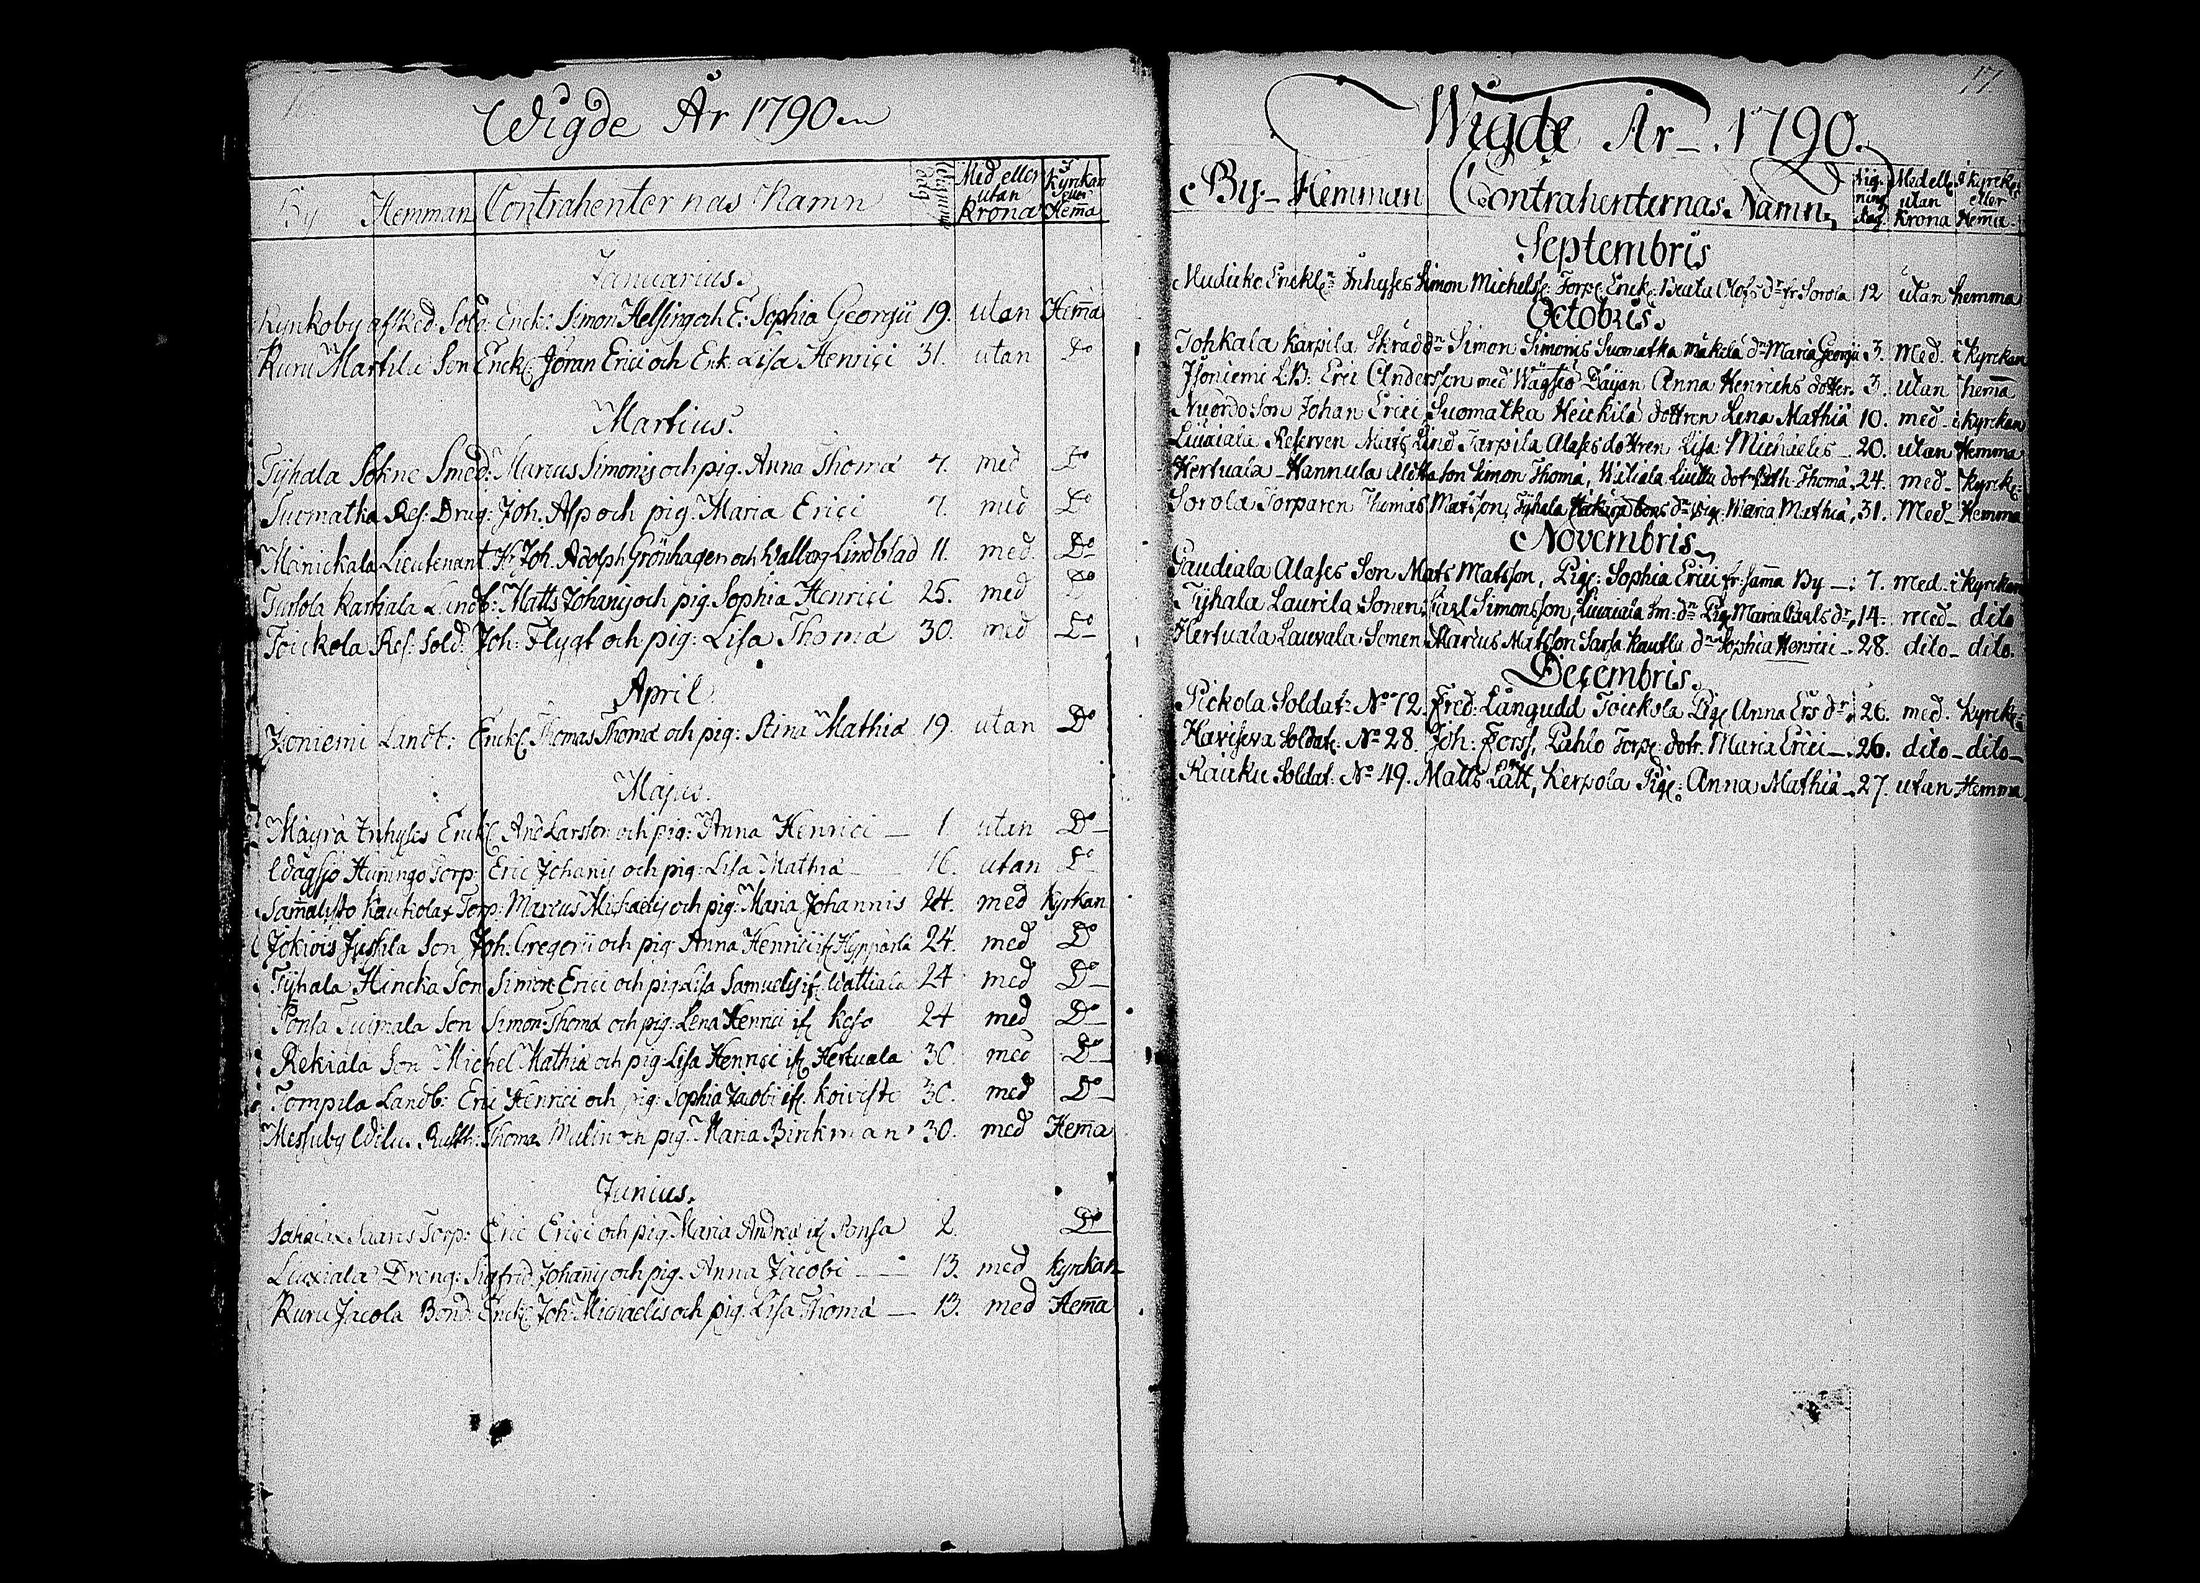 Wigde År 1790
By Hemman Contrahenternas Namn Wignings dag Med eller utan Krona I Kyrckan eller Hem̄a
Januarius.
Kynkoby afsked. Sold: Enck: Simon Helsing och E: Sophia Georgii 19. utan Hem̄a
Kuru Marttila Son Enck: Jöran Erici och Enk. Lisa Henrici 31. utan D:o
Martius.
Tyhala Sokne Smed: Marcus Simonis och pig: Anna Thomæ 7. med D:o
Suomatka Res: Drag: Joh. Alp och pig: Maria Erici 7. med D:o
Mänickala Lieutenant H:r Joh. Adolph Grönhagen och Walborg Lindblad 11. med. D:o
Turtola Karkiala Landb: Matts Johanis och pig: Sophia Henrici 25. med D:o
Toickola Res: Sold: Joh: Flygt och pig: Lisa Thomæ 30. med D:o
April.
Joniemi Landb: Enck: Thomas Thomæ och pig: Stina Mathiæ 19. utan D:o
Majus.
Mäyrä Inhyses Enck: And Larsson och pig: Anna Henrici 1 utan D:o
Wägsjö Huningo Torp: Eric Johanis och pig: Lisa Mathiæ 16. utan D:o
Sam̄alisto Kaukola Torp: Marcus Michaelis och pig: Maria Johannis 24. med Kyrkan
Jokiois Jussila Son Joh: Gregorii och pig: Anna Henrici if: Hyppärlä 24. med D:o
Tyhala Hincka Son Simon Erici och pig Lisa Samuelis if: Wattiala 24 med D:o
Ponsa Tuimala Son Simon Thomæ och pig: Lena Henrici if: Keso 24 med D:o
Rekiala Son Michel Mathiæ och pig Lisa Henrici if: Hertuala 30 med D:o
Tompila Landb: Eric Henrici och pig: Sophia Jacobi if: Koivisto 30. med D:o
Messuby Wilu. Rusth: Thomas Malin och pig: Maria Birckman 30. med Hem̄a
Junius.
Saaris Torp: Eric Erici och pig: Maria Andreæ if: Ponsa 2. D:o
Liuxiala Dreng: Sigfrid Johanis och pig: Anna Jacobi 13. med Kyrckan
Kuru Jacola Bond: Enck: Joh: Michaelis och pig: Lisa Thomæ 13. med Hem̄a
17.
Wigde År 1790.
By Hemman Contrahenternas Namn Wig-ning dag Med ell: utan Krona I kyrck: eller Hem̄a
Septembris
Enckl:n Inhyses Simon Michels: Torp: Enck: Beata Olofs d:r fr Sorola 12 utan hemma
Octobris.
Tohkala Karpila Skrädd:n Simon Simonis Suomatka Mäkelä d:n Maria Georgii 3. Med. i Kyrckan
Joniemi L.B: Eric Andersson med Wägsiö Däyan Anna Henrichs dotter. 3. utan hem̄a
Nuordo Son Johan Erici Suomatka Heickilä dottren Lena Mathiæ 10. med i kyrckan
Liuxiala Reserven Mats Lind Tarpila Alases dottren Lisa Michaelis 20. utan Hemma
Hertuala Hannula Son Simon Thomæ, 24. med kyrck:
Sorola Torparen Thomas Matsson, Tyhala d:n Pig: Maria Mathiæ, 31. Med Hemma
Novembris
Alases Son Mats Matsson, Pig: Sophia Erici fr: sam̄a By 7. med. i Kyrckan
Tyhala Laurila Sonen Carl Simonsson, Liuxiala Sm: d:n Pig: Maria Carls d:r 14. med dito
Hertuala Lauvala Sonen Marcus Matsson Sarsa Kautla d:n Sophia Henrici 28. dito dito.
Decembris.
Pickola Soldat: N:o 72. Fred: Långudd Toickola Pig: Anna Ers d:r 26. med. kyrck:
Havisева Soldat: N:o 28. Joh: Forss, Pahlo Torp: dotr. Maria Erici 26. dito dito
Kauku Soldat: N:o 49. Matts Lätt, Kerpola Pig: Anna Mathiæ 27. utan Hemma